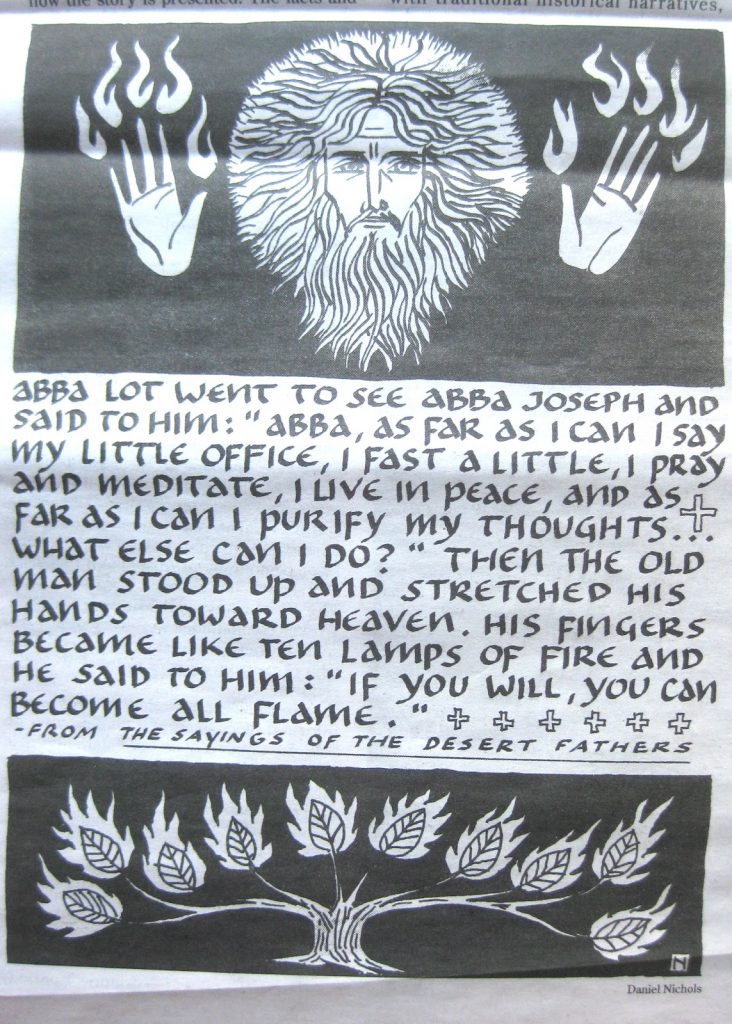 how the story is presented. The facts and
with traditional historical narratives,
ABBA LOT WENT TO SEE ABBA JOSEPH AND
SAID TO HIM: "ABBA, AS FAR AS I CAN I SAY
MY LITTLE OFFICE, I FAST A LITTLE, I PRAY
AND MEDITATE, I LIVE IN PEACE, AND AS
FAR AS I CAN I PURIFY MY THOUGHTS...
WHAT ELSE CAN I DO?" THEN THE OLD
MAN STOOD UP AND STRETCHED HIS
HANDS TOWARD HEAVEN. HIS FINGERS
BECAME LIKE TEN LAMPS OF FIRE AND
HE SAID TO HIM: "IF YOU WILL, YOU CAN
BECOME ALL FLAME."
-FROM THE SAYINGS OF THE DESERT FATHERS
N
Daniel Nichols